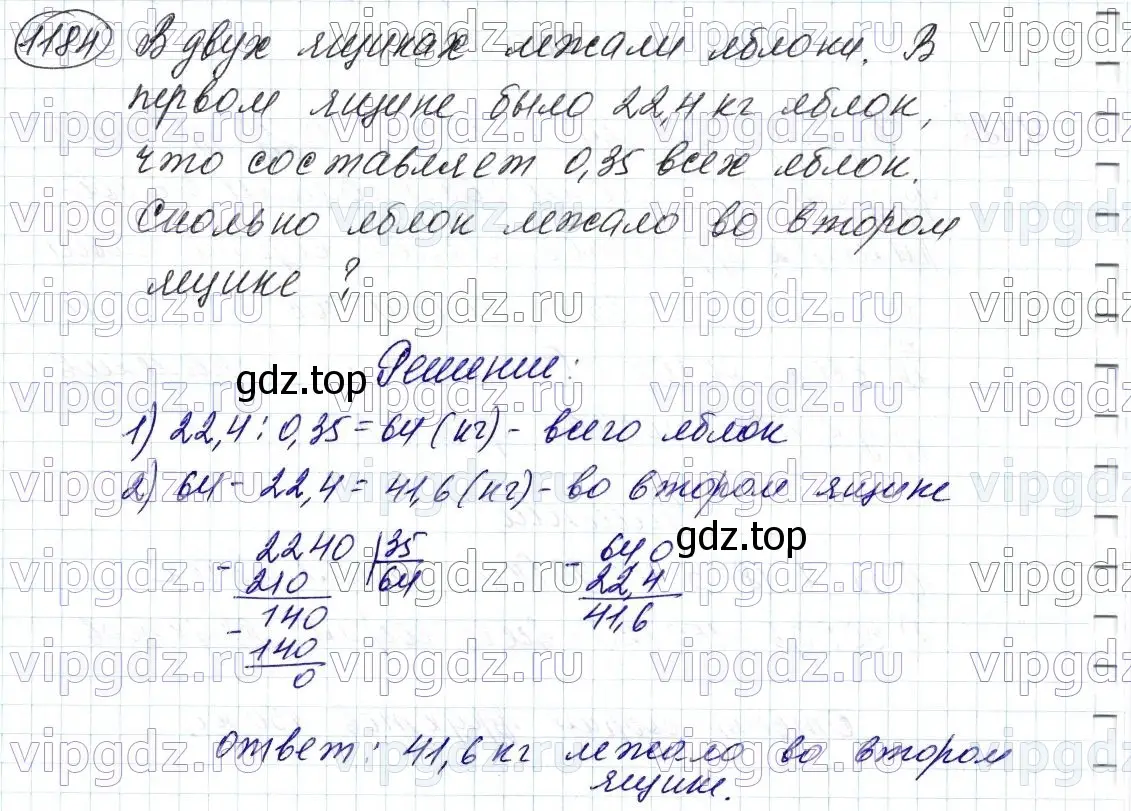 1184 В двух ящиках лежали яблоки. В
первом ящике было 22,4 кг яблок,
что составляет 0,35 всех яблок.
Сколько яблок лежало во втором
ящике?
Решение:
gdz.top
1) 22,4 : 0,35 = 64 (кг) - всего яблок
2) 64 - 22,4 = 41,6 (кг) - во втором ящике
gdz.top
- 2240 | 35
210 64
- 140
140
0
- 64 0
22,4
41,6
ответ: 41,6 кг лежало во втором
ящике.
vipgdz.ru